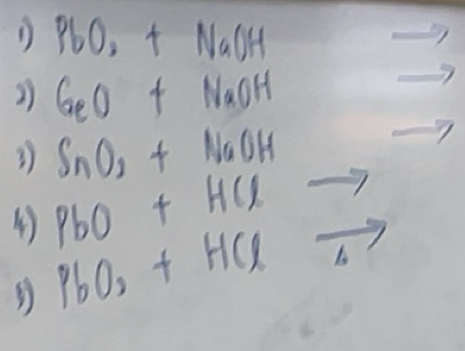 1) PbO₂ + NaOH →
2) GeO + NaOH →
3) SnO₂ + NaOH →
4) PbO + HCl →
5) PbO₂ + HCl → Δ